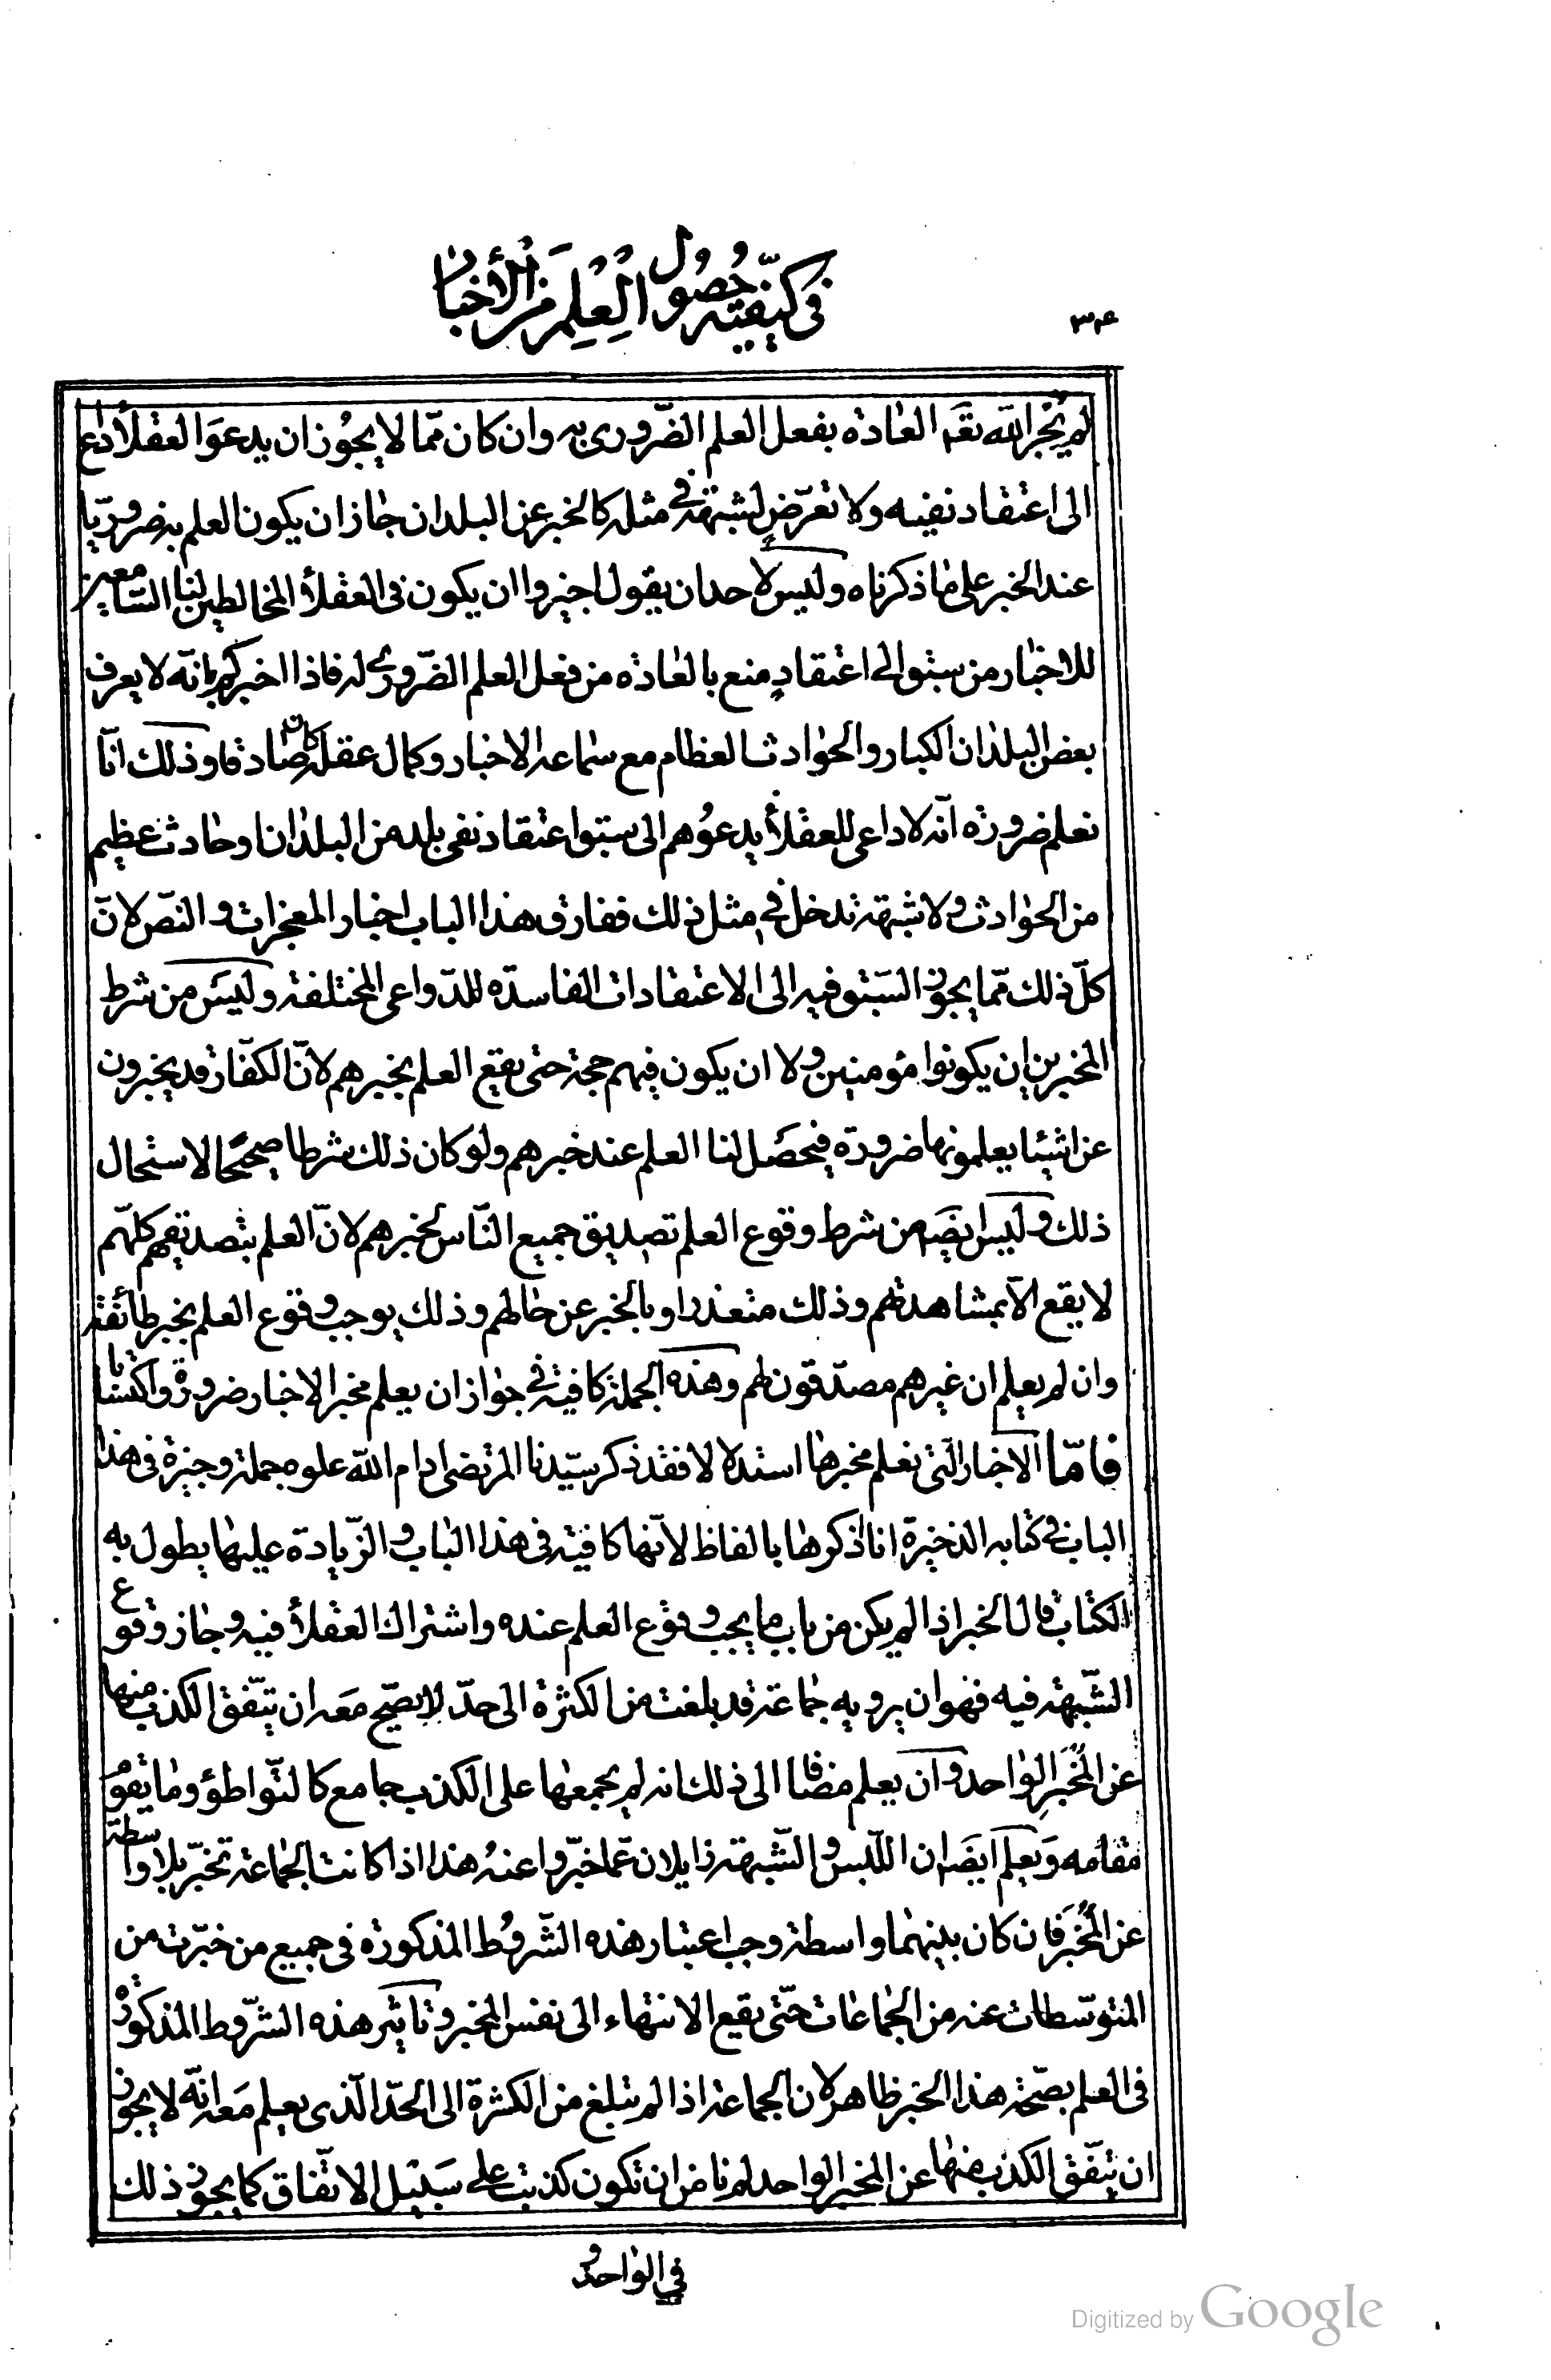 ٣٤
في كيفيّة حُصُول العِلمِ من الأخبار
لم يُجْر الله تعَم العادة بفعل العلم الضّرورى به وان كان ممّا لا يجُوز ان يدعوَ العقلاءَ داع
الى اعتقاد نفيه ولا تعرّض لشبهة في مثله كالخبر عن البلدان جاز ان يكون العلم به ضروريّا
عند الخبر على ما ذكرناه وليس لاحد ان يقول اجيزوا ان يكون فى العقلاء المخالطين لنا السّامعين
للاخبار من سبق الى اعتقادٍ منع بالعادة من فعل العلم الضّرورى له فاذا اخبركم بانّه لا يعرف
بعض البلدان الكبار والحوادث العظام مع سماعه الاخبار وكمال عقله كان صادقا وذلك انّا
نعلم ضرورة انّه لا داعى للعقلاء يدعُوهم الى سبق اعتقاد نفى بلد من البلدان او حادث عظيم
من الحوادث ولا شبهة تدخل في مثل ذلك ففارق هذا الباب اخبار المعجزات والنصّ لانّ
كلّ ذلك ممّا يجوز السّبق فيه الى الاعتقادات الفاسدة للدّواعى المختلفة وليسَ من شرط
المخبرين ان يكونوا مؤمنين ولا ان يكون فيهم حجة حتى يقع العلم بخبرهم لانّ الكفّار قد يخبرون
عن اشياء يعلمونها ضرورة فيحصَل لنا العلم عند خبرهم ولو كان ذلك شرطا صحيحًا لاستحال
ذلك وليس ايضَا من شرط وقوع العلم تصديق جميع النّاس لخبرهم لانّ العلم بتصديقهم كلّهم
لا يقع الّا بمشاهدتهم وذلك متعذر او بالخبر عن حالهم وذلك يوجب وقوع العلم بخبر طائفة
وان لم يعلم ان غيرهم مصدّقون لهم وهذه الجملة كافية في جواز ان يعلم مخبر الاخبار ضرورة واكتسابا
فامّا الاخبار الّتى نعلم مخبرها استدلالا فقد ذكر سيّدنا المرتضى ادام الله علوه جملة وجيزة فى هذا
الباب في كتابه الذخيرة انا اذكرها بالفاظ لانّها كافية فى هذا الباب والزّيادة عليها يطول به
الكتاب قال الخبر اذا لم يكن من باب ما يجب وقوع العلم عنده واشتراك العقلاء فيه وجاز وقوع
الشّبهة فيه فهو ان يرويه جماعة قد بلغت من الكثرة الى حدّ لا يصّح مَعه ان يتّفق الكذب منها
عن المُخبَرِ الواحد وان يعلم مضافا الى ذلك انه لم يجمعها على الكذب جامع كالتّواطؤ وما يقوم
مقامه وَيعلم ايضَا ان اللّبس والشّبهة زايلان عمّا خبّروا عنهُ هذا اذا كانت الجماعة تخبّر بلا واسطة
عن المُخبَر فان كان بينهما واسطة وجب اعتبار هذه الشّروُط المذكورة فى جميع من خبّرت من
المتوسّطات عنه من الجماعات حتّى يقع الانتهاء الى نفس المخبر وتاثير هذه الشّروط المذكورة
فى العلم بصّحة هذا الخبر ظاهر لان الجماعة اذا لم يتبلغ من الكثرة الى الحَدّ الّذى يعلم مَعه انّه لا يجوز
ان يتّفق الكذب منها عن المخبر الواحد لم نامن ان تكون كذبت على سَبيل الاتّفاق كما يجوز ذلك
في الواحد و
Digitized by Google